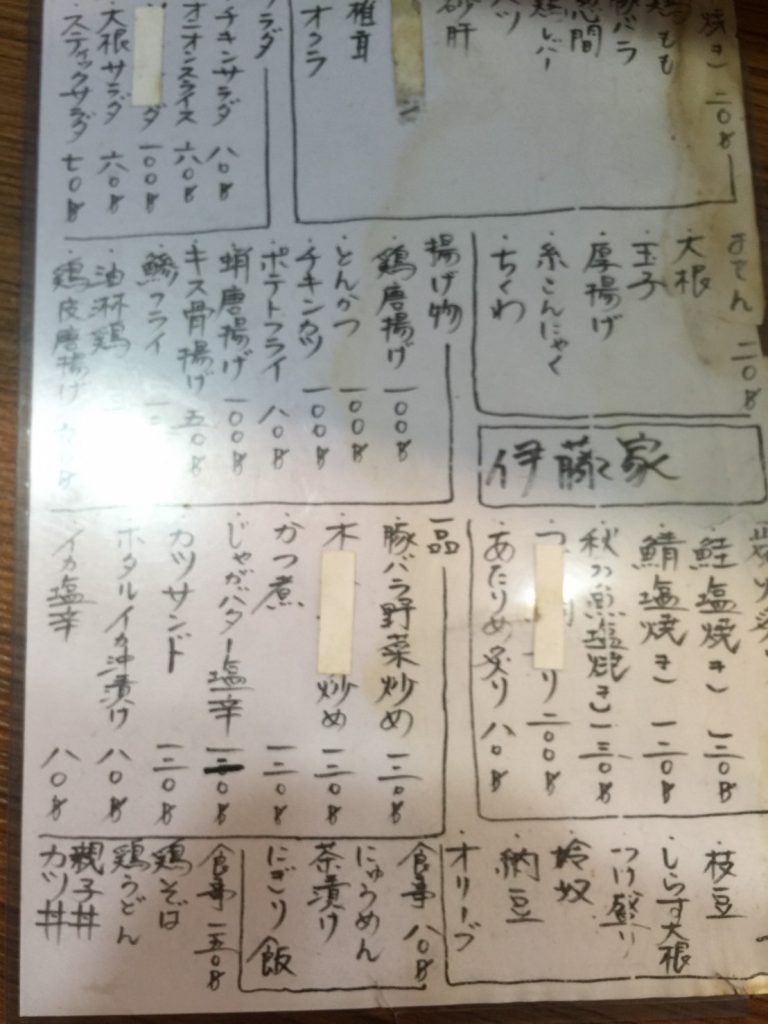 焼き 二〇B
鶏もも
豚バラ
鶏レバー
砂肝
椎茸
オクラ
サラダ
・チキンサラダ 八〇B
・オニオンスライス 六〇B
ダ 一〇〇B
・大根サラダ 六〇B
・スティックサラダ 七〇B
おでん 二〇B
・大根
・玉子
・厚揚げ
・糸こんにゃく
・ちくわ
揚げ物
・鶏唐揚げ 一〇〇B
・とんかつ 一〇〇B
・チキンカツ 一〇〇B
・ポテトフライ 八〇B
・蛸唐揚げ 一〇〇B
・キス骨揚げ 五〇B
・鯵フライ
・油淋鶏
・鶏皮唐揚げ
伊藤家
・鮭塩焼き 一三〇B
・鯖塩焼き 一二〇B
・秋刀魚塩焼き 一三〇B
二〇〇B
・あたりめ炙り 八〇B
一品
・豚バラ野菜炒め 一二〇B
・木 炒め 一三〇B
・かつ煮 一二〇B
・じゃがバター塩辛
・カツサンド 一三〇B
・ホタルイカ沖漬け 八〇B
・イカ塩辛 八〇B
・枝豆
・しらす大根
・つけ盛り
・冷奴
・納豆
・オリーブ
食事 八〇B
にゅうめん
茶漬け
にぎり飯
食事 一五〇B
鶏そば
鶏うどん
親子丼
カツ丼